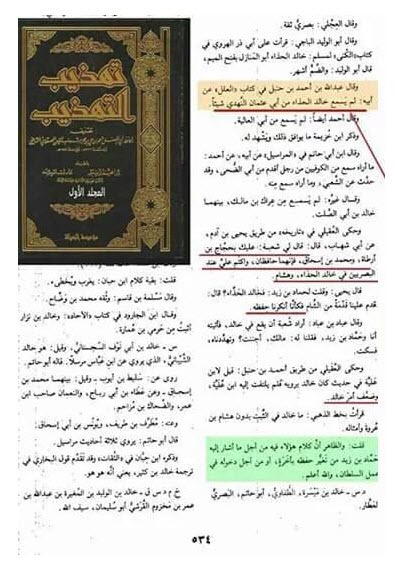 وقال العِجْلي: بصريٌّ ثقة.
وقال أبو الوليد الباجي: قرأت على أبي ذر الهروي في
كتاب «الكُنى» لمسلم: خالد الحذاء أبو المنازل بفتح الميم،
قال أبو الوليد: والضمُّ أشهر.
وقال عبدالله بن أحمد بن حنبل في كتاب «العلل» عن
أبيه: لم يسمع خالد الحذاء من أبي عثمان النهدي شيئاً.
وقال أحمد أيضاً: لم يسمع من أبي العالية.
وذكر ابن خزيمة ما يوافق ذلك ويشهد له.
وقال ابن أبي حاتم في «المراسيل» عن أبيه، عن أحمد:
ما أراه سمع من الكوفيين من رجل أقدم من أبي الضحى، وقد
حدَّث عن الشعبي، وما أراه سمع منه.
وقال غيره: لم يسمع من عِراك بن مالك، بينهما
خالد بن أبي الصلت.
وحكى العقيلي في «تاريخه» من طريق يحيى بن آدم،
عن أبي شهاب، قال: قال لي شعبة: عليك بحجَّاج بن
أرطاة، ومحمد بن إسحاق، فإنهما حافظان، واكتم عليَّ عند
البصريين في خالد الحذاء، وهشام.
قال يحيى: وقلت لحماد بن زيد: فخالد الحَذَّاء؟ قال:
قدم علينا قَدْمَةً من الشام فكأنَّا أنكرنا حفظه.
وقال عباد بن عباد: أراد شعبة أن يقع في خالد، فأتيته
أنا وحمَّاد بن زيد، فقلنا له: مالك، أجننت؟ وتهددناه،
فسكت.
وحكى العقيلي من طريق أحمد بن حنبل: قيل لابن
عُليَّة في حديث كان خالد يرويه فلم يلتفت إليه ابن عُليَّة،
وضعَّف أمر خالد.
قرأتُ بخط الذهبي: ما خالد في الثَّبْت بدون هشام بن
عروة وأمثاله.
قلت: والظاهر أنَّ كلام هؤلاء فيه من أجل ما أشار إليه
حمَّاد بن زيد من تغيُّر حفظه بأخرة، أو من أجل دخوله في
عمل السلطان، والله أعلم.
د س ـ خالد بن مَيْسَرة، الطُّفاوي، أبو حاتم، البصريُّ
العطَّار.
تهذيب
التهذيب
المجلد الأول
مؤسسة الرسالة
قلت: بقية كلام ابن حبان: يغرب ويخطىء.
وقال مسلمة بن قاسم: وثَّقه محمد بن وَضَّاح.
وقال ابن الجارود في كتاب «الآحاد»: وخالد بن نزار
أثبتُ من حَرَمي بن عُمارة.
س ـ خالد بن أبي نَوْف السِّجِسْتاني، وقيل: هو خالد
الشَّيْباني، الذي يروي عن ابن عباس مرسلاً. قاله أبو حاتم.
روى عن: سَليط بن أيوب ـ وقيل: بينهما محمد بن
إسحاق ـ وعن عطاء بن أبي رباح، والنعمان صاحب ابن
عمر، والضَّحاك بن مُزاحم.
وعنه: مُطَرِّف بن طريف، ويونُس بن أبي إسحاق.
قال أبو حاتم: يروي ثلاثة أحاديث مراسيل.
وذكره ابن حِبَّان في «الثقات» وقد تقدَّم قول البخاري في
ترجمة خالد بن كثير، يعني أنَّه هو هو.
خ م د س ق ـ خالد بن الوليد بن المغيرة بن عبدالله بن
عمر بن مَخزوم القُرَشيُّ أبو سليمان، سيف الله.
٥٣٤